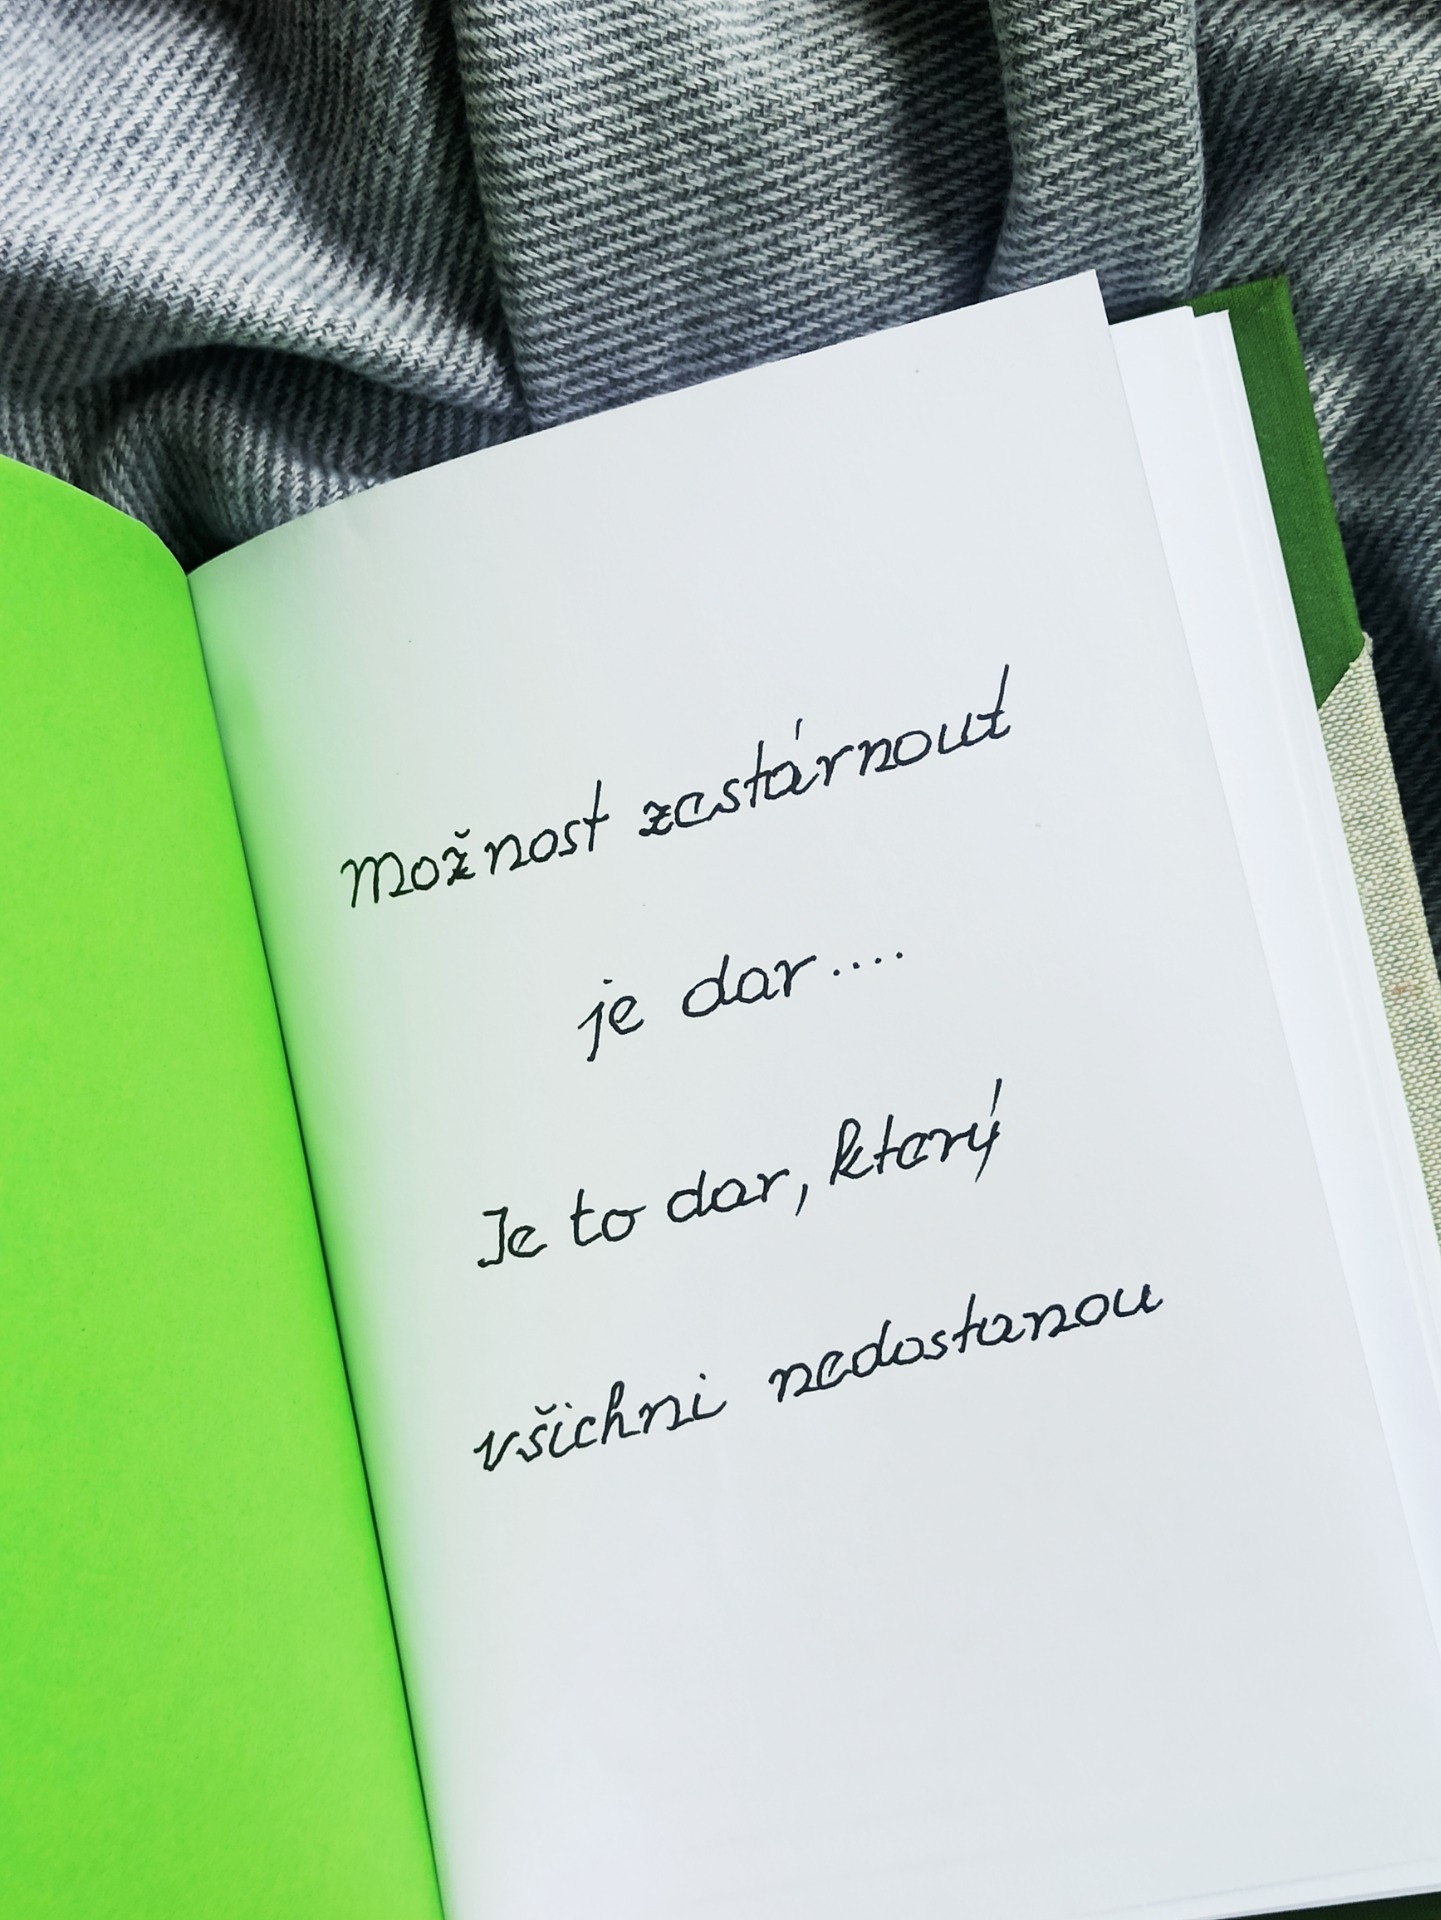 Možnost zestárnout
je dar....
Je to dar, který
všichni nedostanou